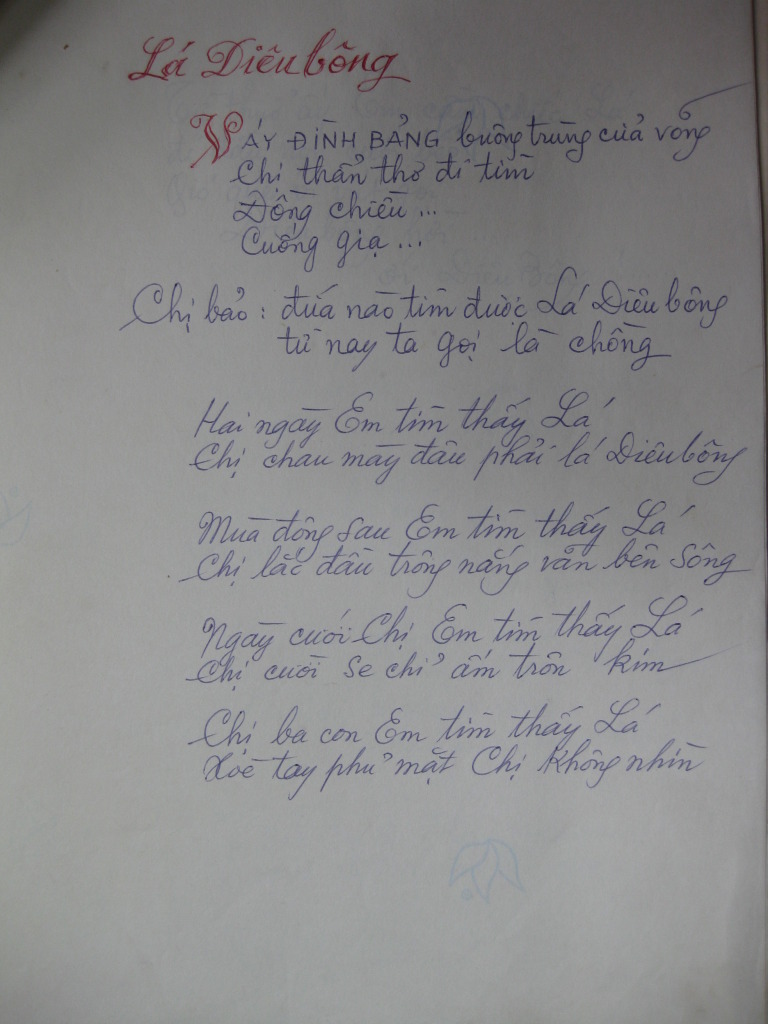 Lá Diêu bông
VÁY ĐÌNH BẢNG buông trùng cửa võng
Chị thẩn thơ đi tìm
Đồng chiều ...
Cuống giạ ...
Chị bảo : đứa nào tìm được Lá Diêu bông
từ nay ta gọi là chồng
Hai ngày Em tìm thấy Lá
Chị chau mày đâu phải lá Diêu bông
Mùa đông sau Em tìm thấy Lá
Chị lắc đầu trông nắng vãn bên sông
Ngày cưới Chị Em tìm thấy Lá
Chị cười se chỉ ấm trôn kim
Chị ba con Em tìm thấy Lá
Xòe tay phủ mặt Chị không nhìn